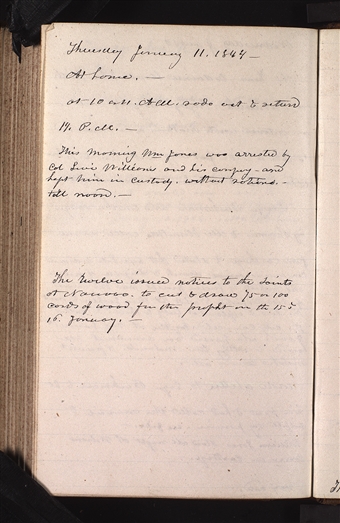 Thursday January 11. 1844 —
At home. —
at 10 A.M. rode out & return
P.M. —
This morning Wm Jones was arrested by
Col Levi Williams and his company - and
kept him in custody. without
till noon. —
The Twelve issued notices to the Saints
at Nauvoo. to cut & draw 75 or 100
cords of wood for the prophet on the 15 &
16. January. —